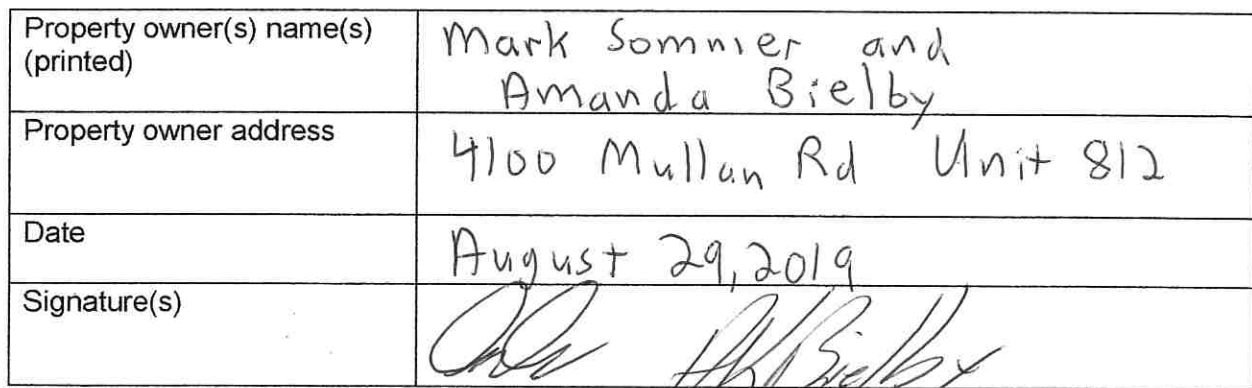 Property owner(s) name(s)
(printed)
Mark Sommer and
Amanda Bielby
Property owner address
4100 Mullan Rd Unit 812
Date
August 29, 2019
Signature(s)
Bielby